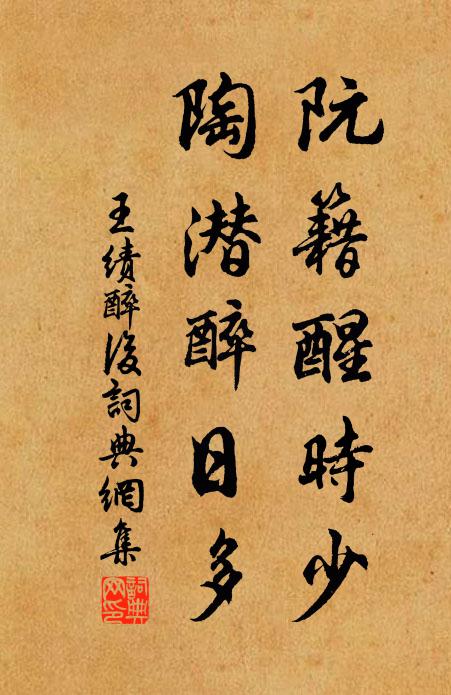 阮籍醒時少
陶潜醉日多
王績醉後詞典網集
詞典網印